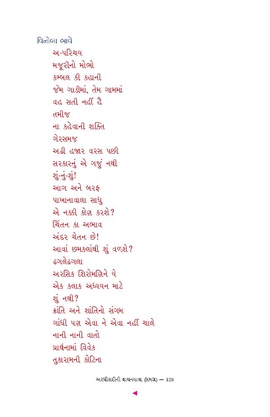 વિનોબા ભાવે
અ-પરિચય
મજૂરીનો મોભો
કમ્બલ કી કહાની
જેમ ગાડીમાં, તેમ ગામમાં
વહ સતી નહીં હૈ
તમીજ
ના કહેવાની શક્તિ
ગેરસમજ
અઢી હજાર વરસ પછી
સરકારનું એ ગજું નથી
શું-નું-શું!
આગ અને બરફ
પાખાનાવાલા સાધુ
એ નક્કી કોણ કરશે?
ચિંતન કા અભાવ
અંદર ચેતન છે!
આવાં છમકલાંથી શું વળશે?
ઢગલેઢગલા
અરસિક શિરોમણિને યે
એક કલાક અધ્યયન માટે
શું નથી?
ક્રાંતિ અને શાંતિનો સંગમ
ગાંધી પણ એવા ને એવા નહીં ચાલે
નાની નાની વાતો
પ્રાર્થનામાં વિવેક
તુકારામની કોટિના
અરધીસદીની વાચનયાત્રા